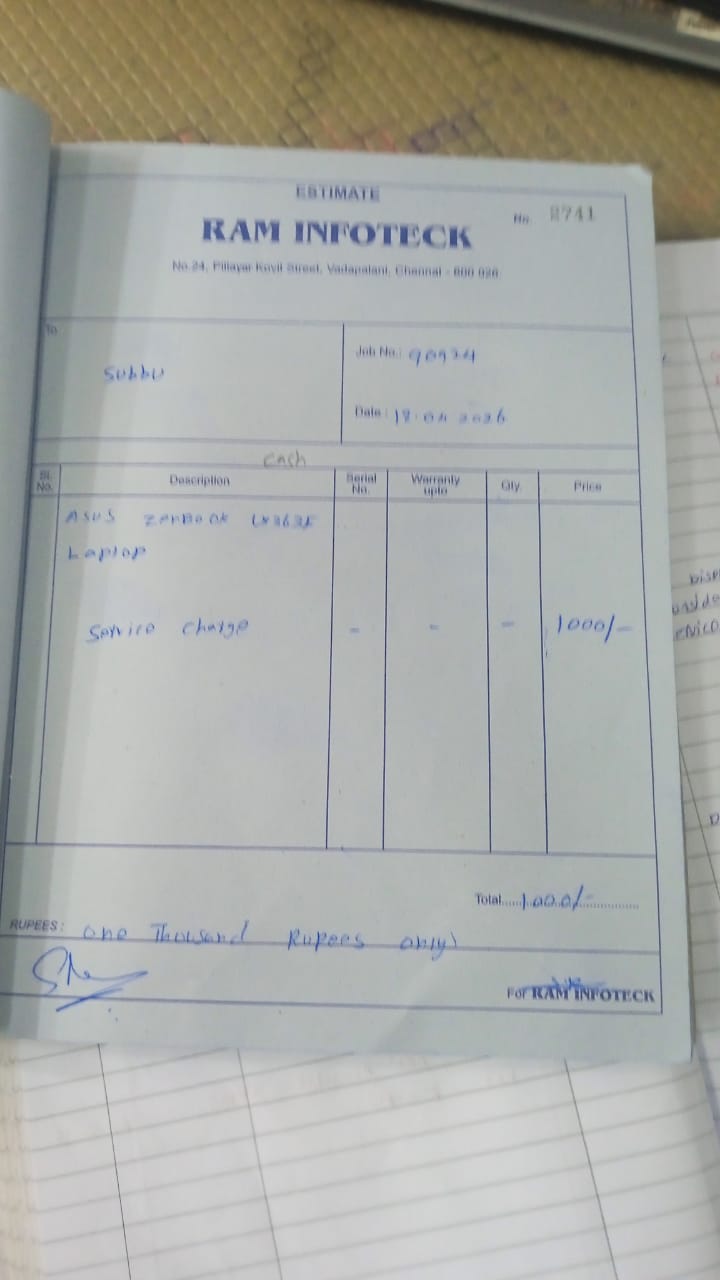 ESTIMATE
No. 2741
RAM INFOTECK
No.24, Pillayar Kovil Street, Vadapalani, Chennai - 600 026.
To
Subbu
Job No.: 90934
Date: 18.04 2026
Cash
Sl. No. Description Serial No. Warranty upto Qty. Price
ASUS ZenBook
Laptop
Service charge - - - 1000/-
Total......1000/-
RUPEES: One Thousand Rupees only)
For RAM INFOTECK